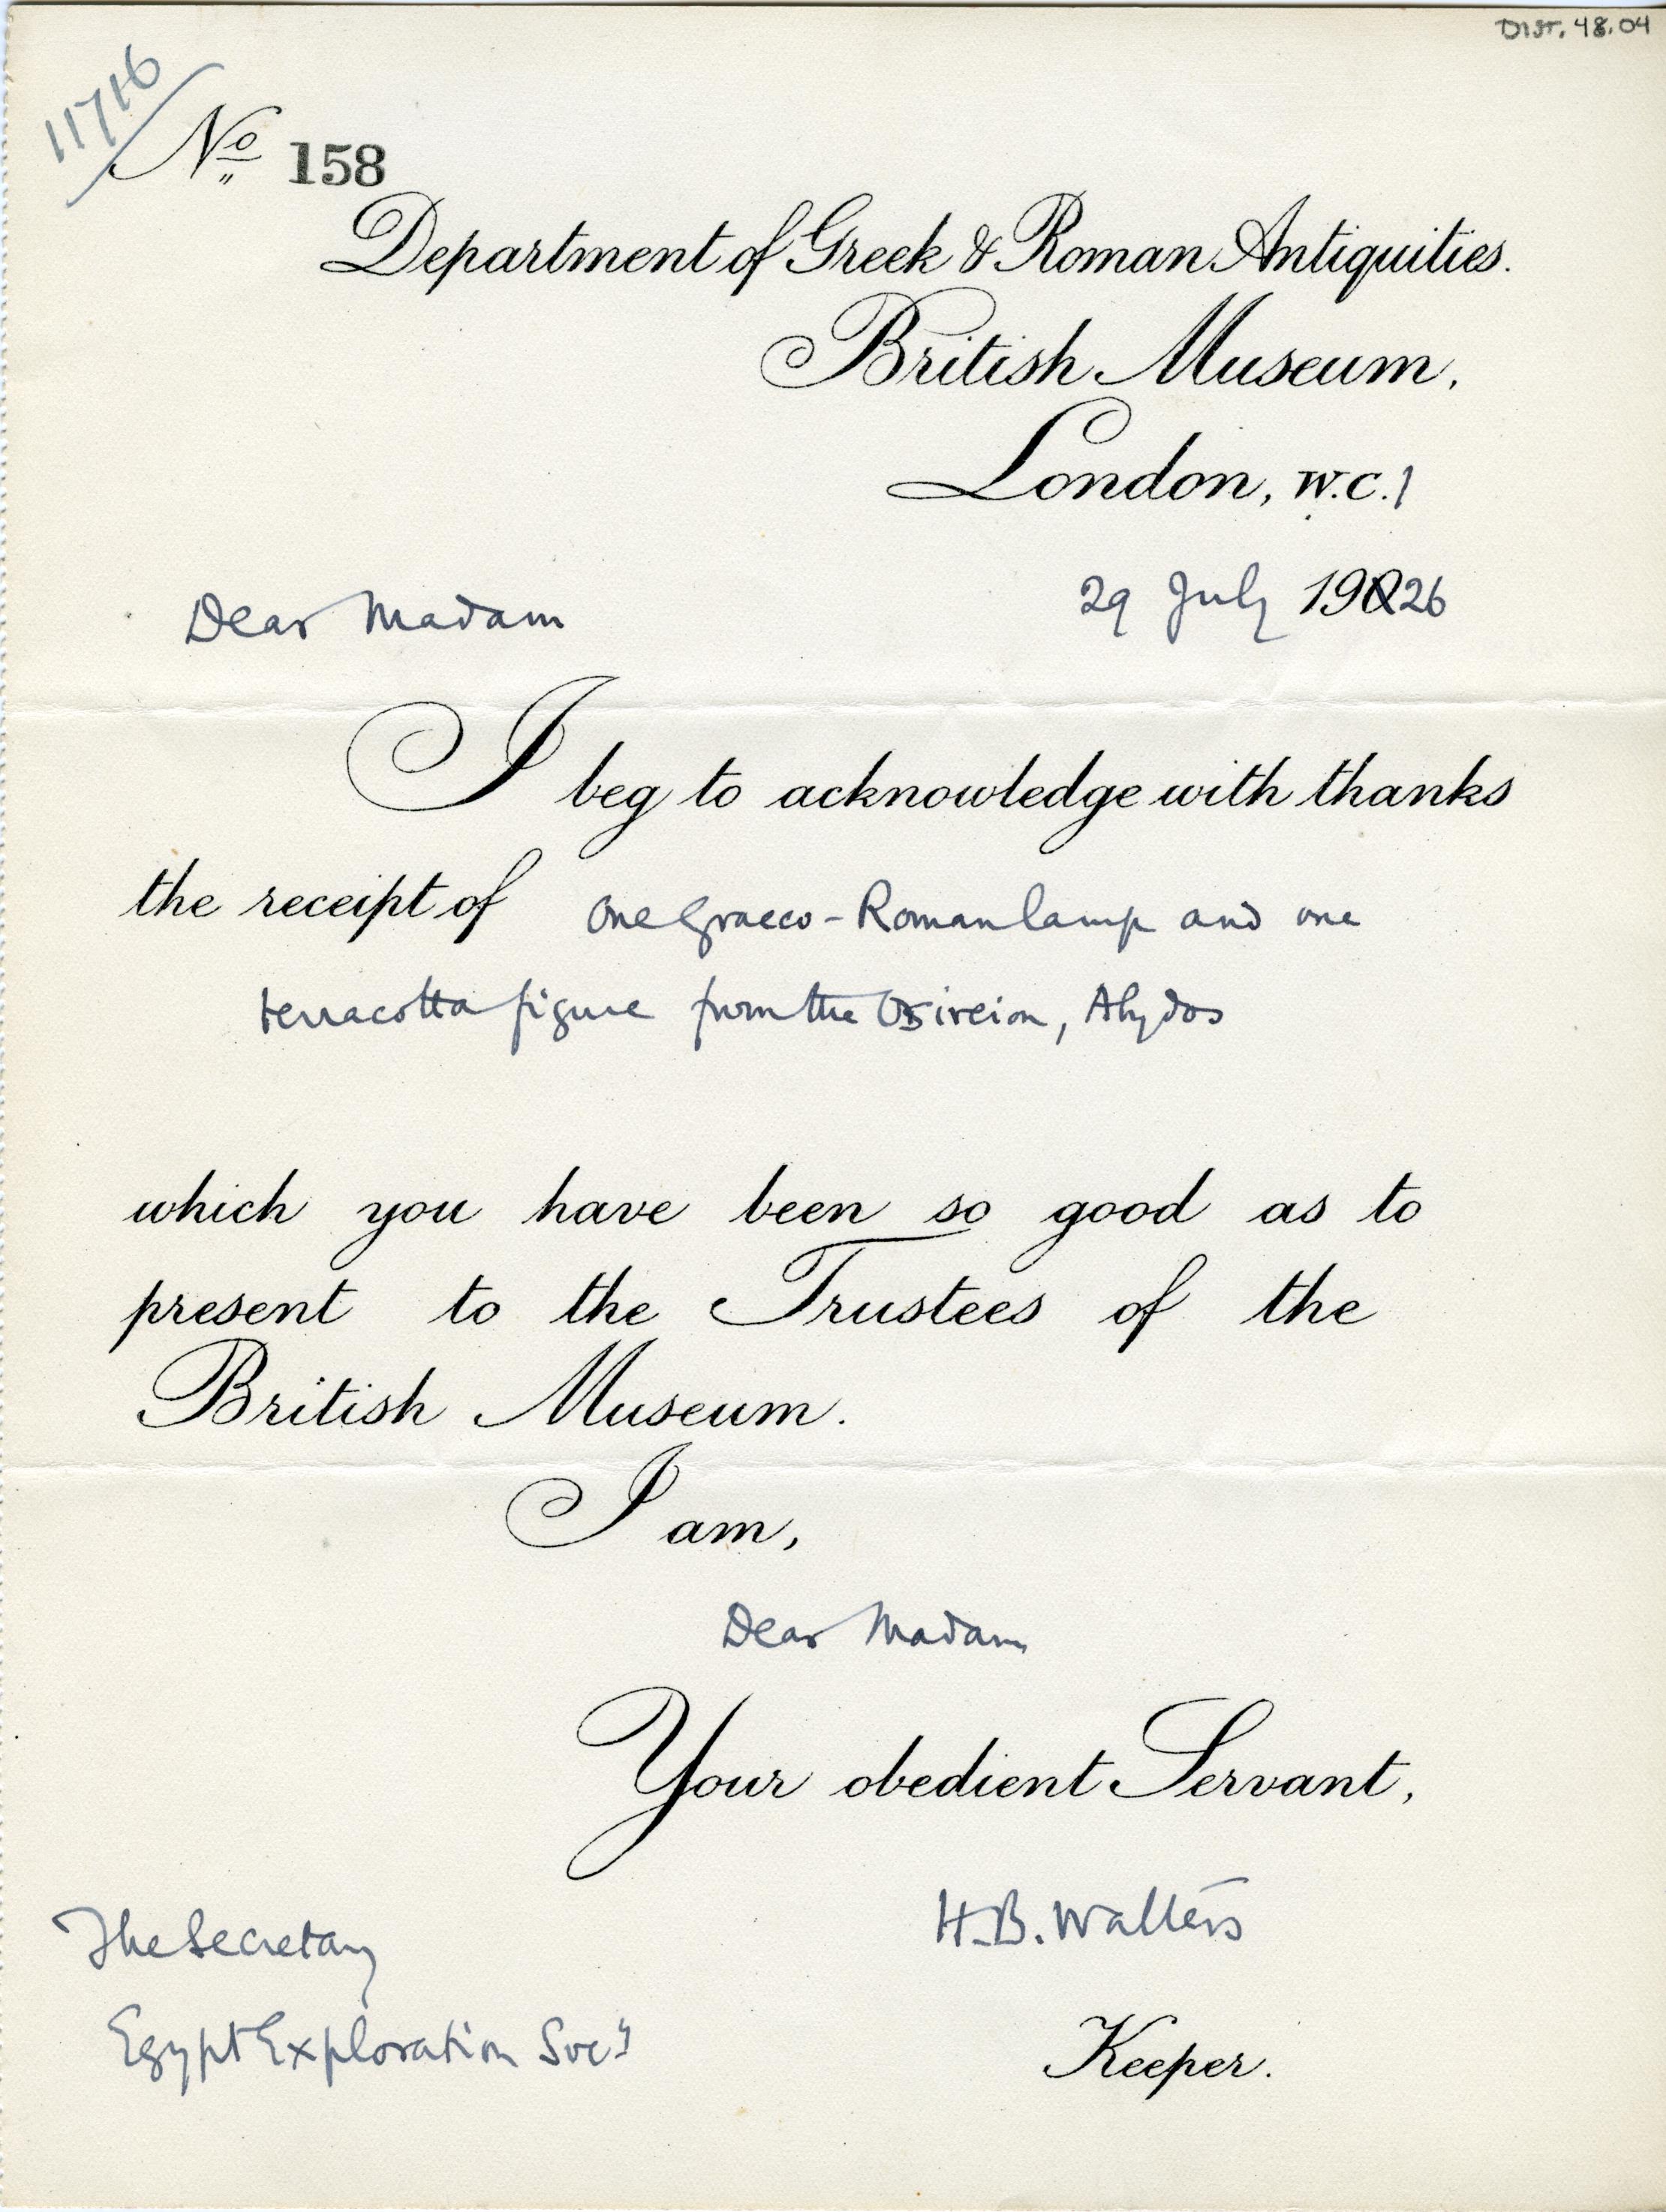 DIST. 48.04
No 158
Department of Greek & Roman Antiquities.
British Museum,
London, W.C.1
29 July 1926
Dear Madam
I beg to acknowledge with thanks
the receipt of one Graeco-Roman lamp and one
terracotta figure from the Osireion, Abydos
which you have been so good as to
present to the Trustees of the
British Museum.
I am,
Dear Madam
Your obedient Servant,
H.B. Walters
Keeper.
The Secretary
Egypt Exploration Socy